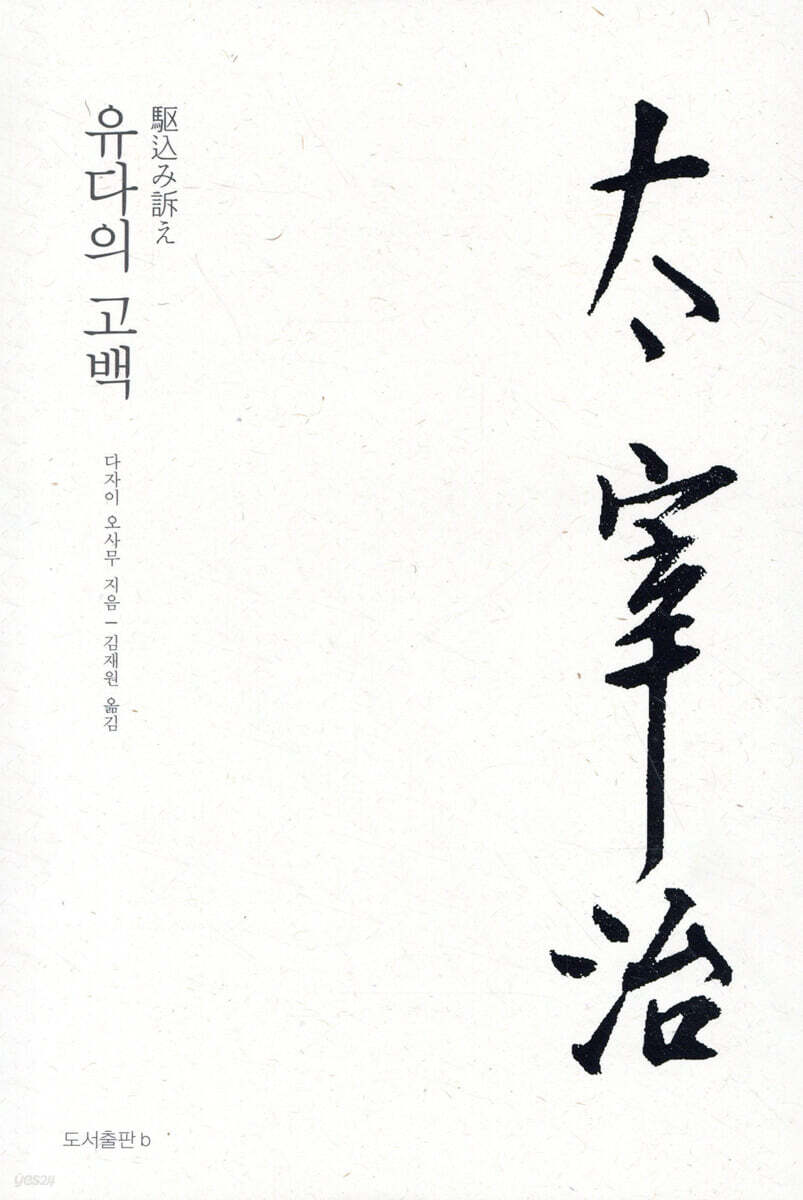 太宰治
駆込み訴え
유다의 고백
다자이 오사무 지음 – 김재원 옮김
도서출판 b
yes24